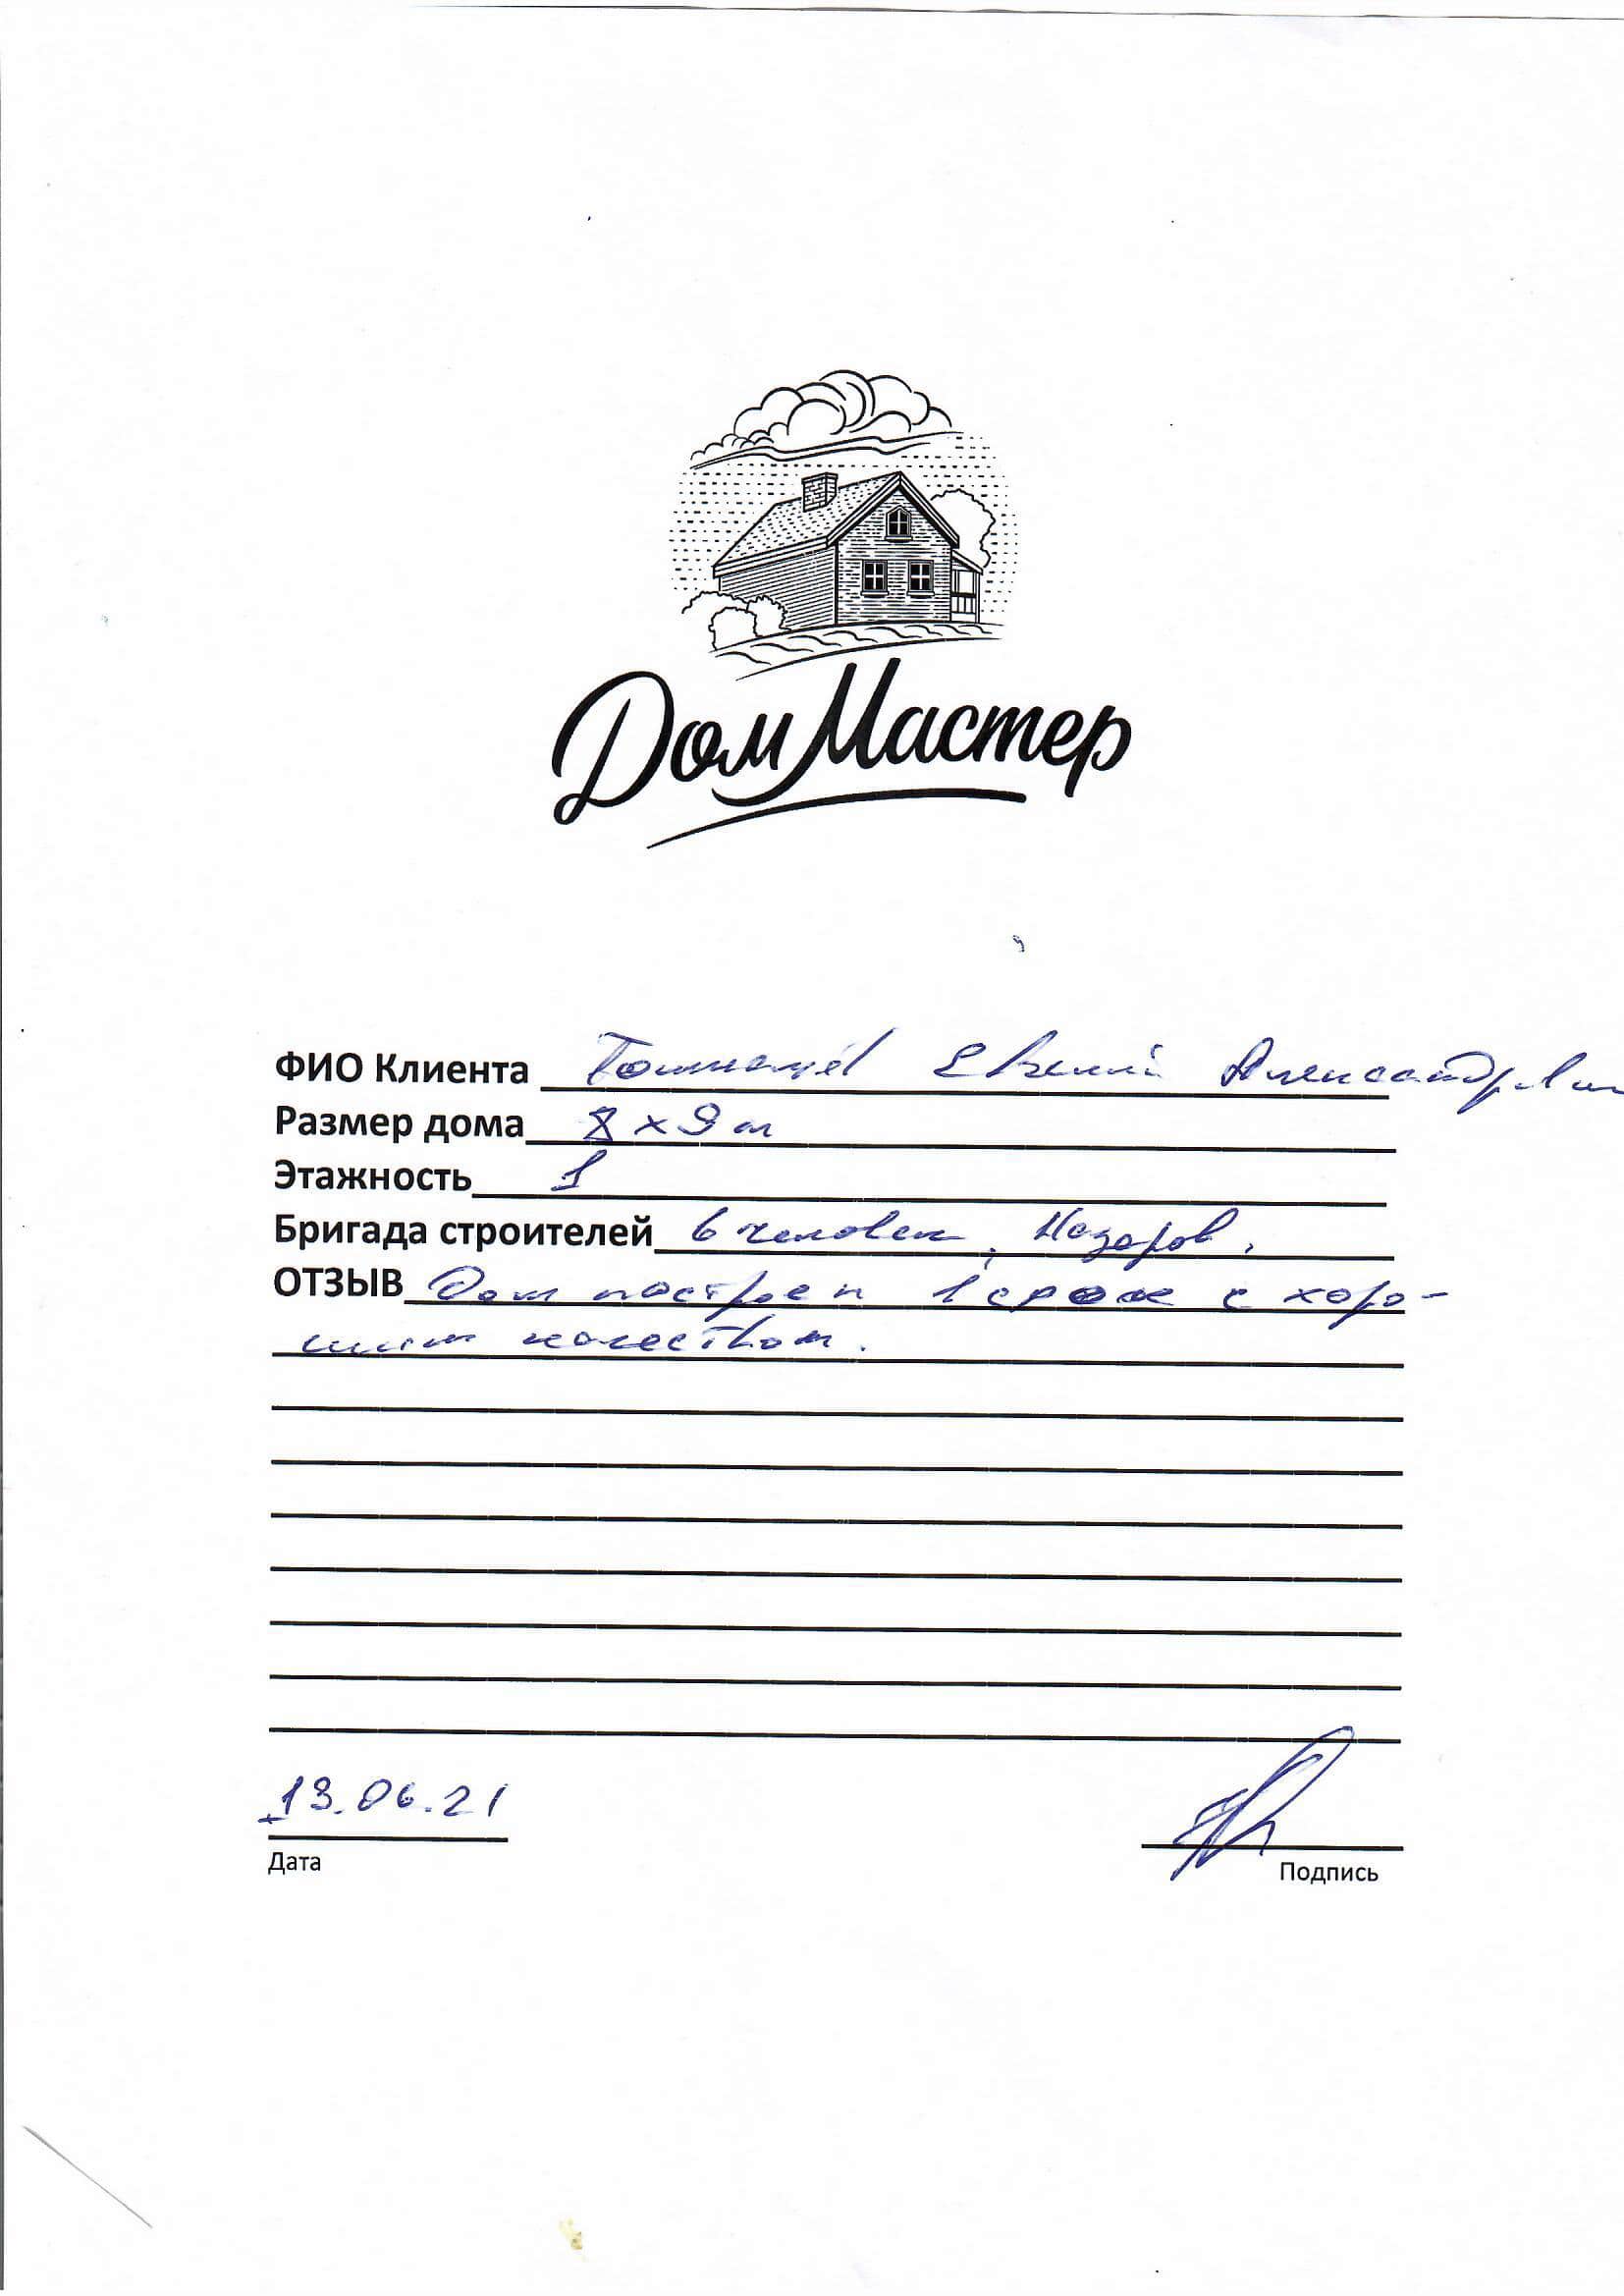 Дом Мастер
ФИО Клиента Евгений Александрович
Размер дома 8 х 9 м
Этажность 1
Бригада строителей 6 человек, Назаров.
ОТЗЫВ Дом построен в срок с хоро-
шим качеством.
13.06.21
Дата
Подпись